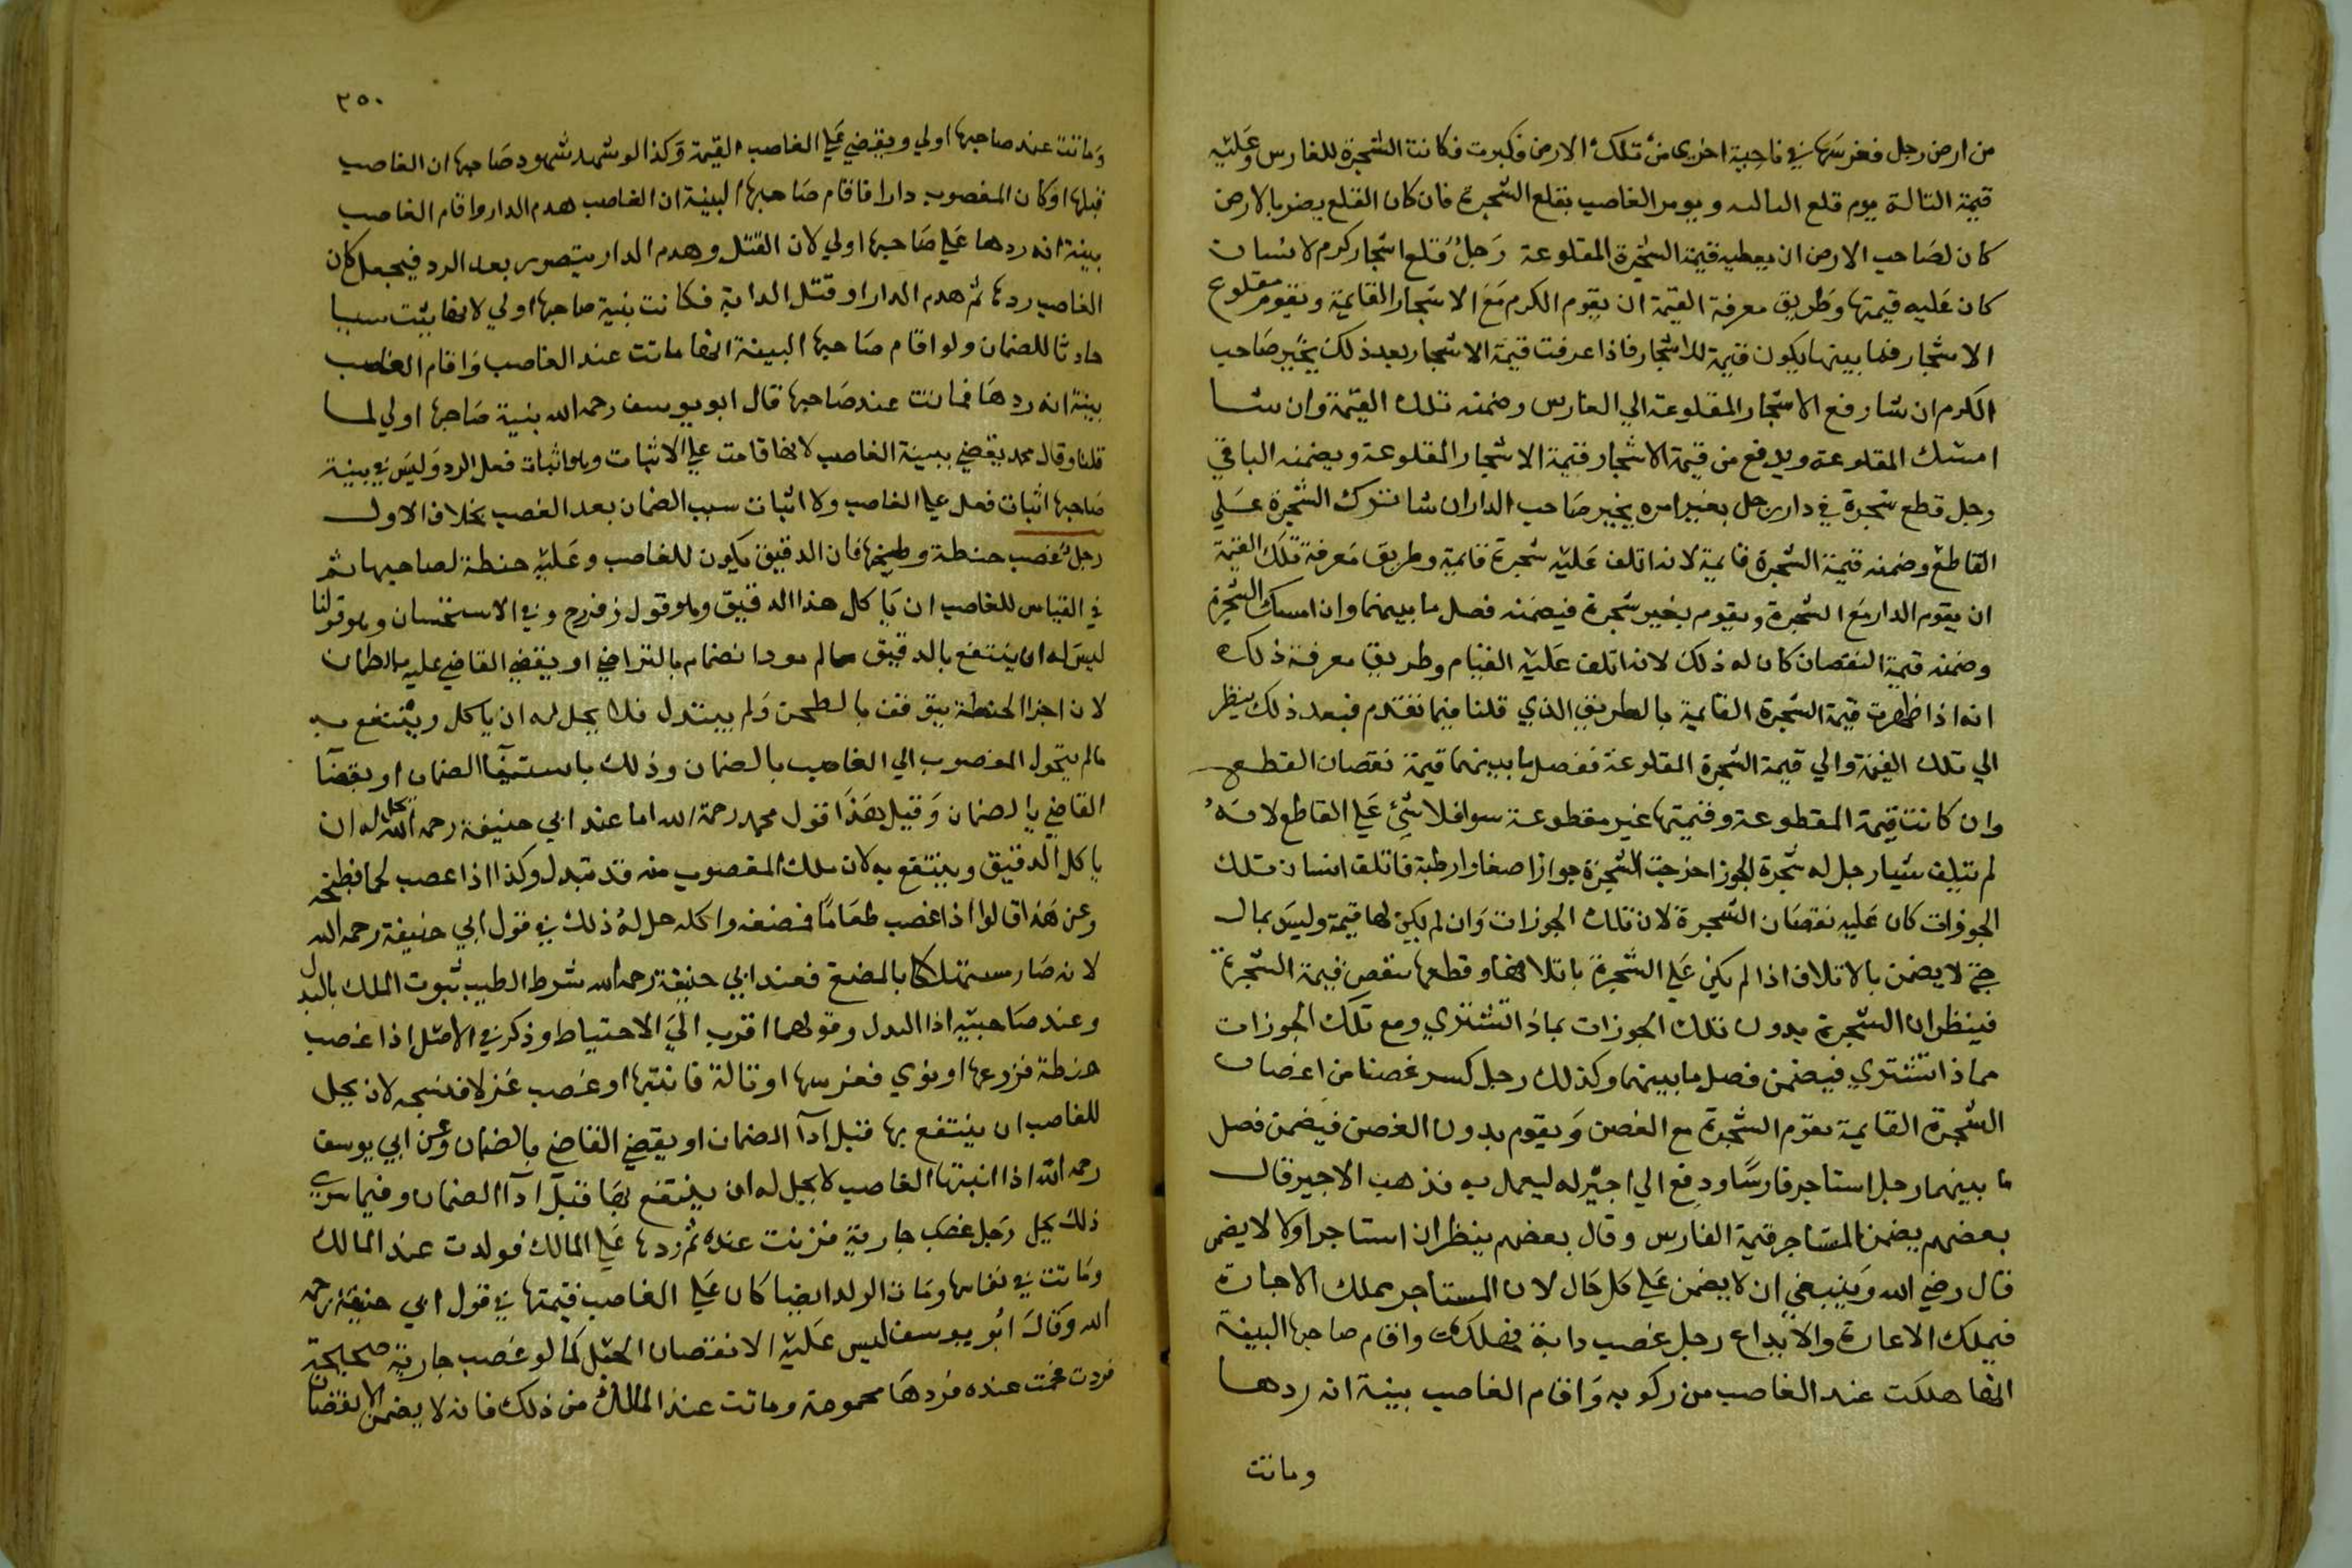 من ارض رجل فغرسها في ناحية اخري من تلك الارض فكبرت فكانت الشجرة للغارس وعليه
قيمة التالة يوم قلع التالة ويومر الغاصب بقلع الشجرة فان كان القلع يضر بالارض
كان لصاحب الارض ان يعطيه قيمة الشجرة المقلوعة رجل قلع اشجار كرم لانسان
كان عليه قيمتها وطريق معرفة القيمة ان يقوم الكرم مع الاشجار القايمة ويقوم مقلوع
الاشجار فما بينهما يكون قيمة الاشجار فاذا عرفت قيمة الاشجار بعد ذلك يخير صاحب
الكرم ان شا رفع الاشجار المقلوعة الي الغارس وضمنه تلك القيمة وان شا
امسك المقلوعة ويدفع من قيمة الاشجار قيمة الاشجار المقلوعة ويضمنه الباقي
رجل قطع شجرة في دار رجل بغير امره يخير صاحب الدار ان شا ترك الشجرة علي
القاطع وضمنه قيمة الشجرة قايمة لانه اتلف عليه شجرة قايمة وطريق معرفة تلك القيمة
ان يقوم الدار مع الشجرة ويقوم بغير شجرة فيضمنه فضل ما بينهما وان امسك الشجرة
وضمنه قيمة النقصان كان له ذلك لانه اتلف عليه القيام وطريق معرفة ذلك
انه اذا ظهرت قيمة الشجرة القايمة بالطريق الذي قلنا فيما تقدم فبعد ذلك ينظر
الي تلك القيمة والي قيمة الشجرة المقلوعة ففضل ما بينهما قيمة نقصان القطع
وان كانت قيمة المقطوعة وقيمتها غير مقطوعة سوا فلا شئ علي القاطع لانه
لم يتلف شيا رجل له شجرة الجوز اخرجت الشجرة جوازا صغارا رطبة فاتلف انسان تلك
الجوزات كان عليه نقصان الشجرة لان تلك الجوزات وان لم يكن لها قيمة وليس بمال
حتي لا يضمن بالاتلاف اذا لم يكن علي الشجرة باتلافها وقطعها ينقص قيمة الشجرة
فينظر ان الشجرة بدون تلك الجوزات بماذا تشتري ومع تلك الجوزات
مماذا تشتري فيضمن فضل ما بينهما وكذلك رجل كسر غصنا من اغصان
الشجرة القايمة يقوم الشجرة مع الغصن ويقوم بدون الغصن فيضمن فضل
ما بينهما رجل استاجر فارسا ودفع الي اجير له ليعمل به فذهب الاجير قال
بعضهم يضمن المستاجر قيمة الفارس وقال بعضهم ينظر ان استاجر اولا لا يضمن
قال رضي الله وينبغي ان لا يضمن علي كل حال لان المستاجر يملك الاجارة
فيملك الاعارة والايداع رجل غصب دابة فهلكت واقام صاحبها البينة
انها هلكت عند الغاصب من ركوبه واقام الغاصب بينة انه ردها
وماتت
٢٥٠
وماتت عند صاحبها اولي ويقضي علي الغاصب القيمة وكذا لو شهد شهود صاحبها ان الغاصب
قبلها او كان المغصوب دارا فاقام صاحبها البينة ان الغاصب هدم الدار واقام الغاصب
بينة انه ردها علي صاحبها اولي لان القتل وهدم الدار يتصور بعد الرد فيجعل كان
الغاصب ردها ثم هدم الدار او قتل الدابة فكانت بنية صاحبها اولي لانها يثبت سببا
حادثا للضمان ولو اقام صاحبها البينة انها ماتت عند الغاصب واقام الغاصب
بينة انه ردها فماتت عند صاحبها قال ابو يوسف رحمه الله بنية صاحبها اولي لما
قلنا وقال محمد يقضي ببينة الغاصب لانها قامت علي الاثبات وهو اثبات فعل الرد وليس في بينة
صاحبها اثبات فعل علي الغاصب ولا اثبات سبب الضمان بعد الغصب بخلاف الاول
رجل غصب حنطة وطحنها فان الدقيق يكون للغاصب وعليه حنطة لصاحبها ثم
في القياس للغاصب ان ياكل هذا الدقيق وهو قول زفر رح وفي الاستحسان وهو قولنا
ليس له ان ينتفع بالدقيق مالم يودا لضمان بالتراضي او يقضي القاضي عليه بالضمان
لان اجزا الحنطة يتوقف بالطحن ولم يبتدل فلا يحل له ان ياكل وينتفع به
مالم يتحول المغصوب الي الغاصب بالضمان وذلك باستيفا الضمان او بقضا
القاضي بالضمان وقيل هذا قول محمد رحمة الله اما عند ابي حنيفة رحمه الله يحل له ان
ياكل الدقيق وينتفع به لان ملك المغصوب منه قد تبدل وكذا اذا غصب لحما فطبخه
وعن هذا قالوا اذا غصب طعاما فمضغه واكله حل له ذلك في قول ابي حنيفة رحمه الله
لانه صار مستهلكا بالمضغ فعند ابي حنيفة رحمه الله شرط الطيب ثبوت الملك بالبدل
وعند صاحبيه اذا البدل وقولهما اقرب الي الاحتياط وذكر في الاصل اذا غصب
حنطة فزرعها او نوي فغرسها او تالة فانبتها او غصب غزلا فنسجه لانه يحل
للغاصب ان ينتفع بها قبل ادآ الضمان او يقضي القاضي بالضمان وعن ابي يوسف
رحمه الله اذا انبتها الغاصب لا يحل له ان ينتفع بها قبل ادآ الضمان وفيما سوي
ذلك يحل رجل غصب جارية فزنت عنده ثم ردها علي المالك فولدت عند المالك
وماتت في نفاسها ومات الولد ايضا كان علي الغاصب قيمتها في قول ابي حنيفة رحمه
الله وقال ابو يوسف ليس عليه الا نقصان الحبل كما لو غصب جارية صحيحة
فحمت عنده فردها محمومة وماتت عند المالك من ذلك فانه لا يضمن الا نقصان